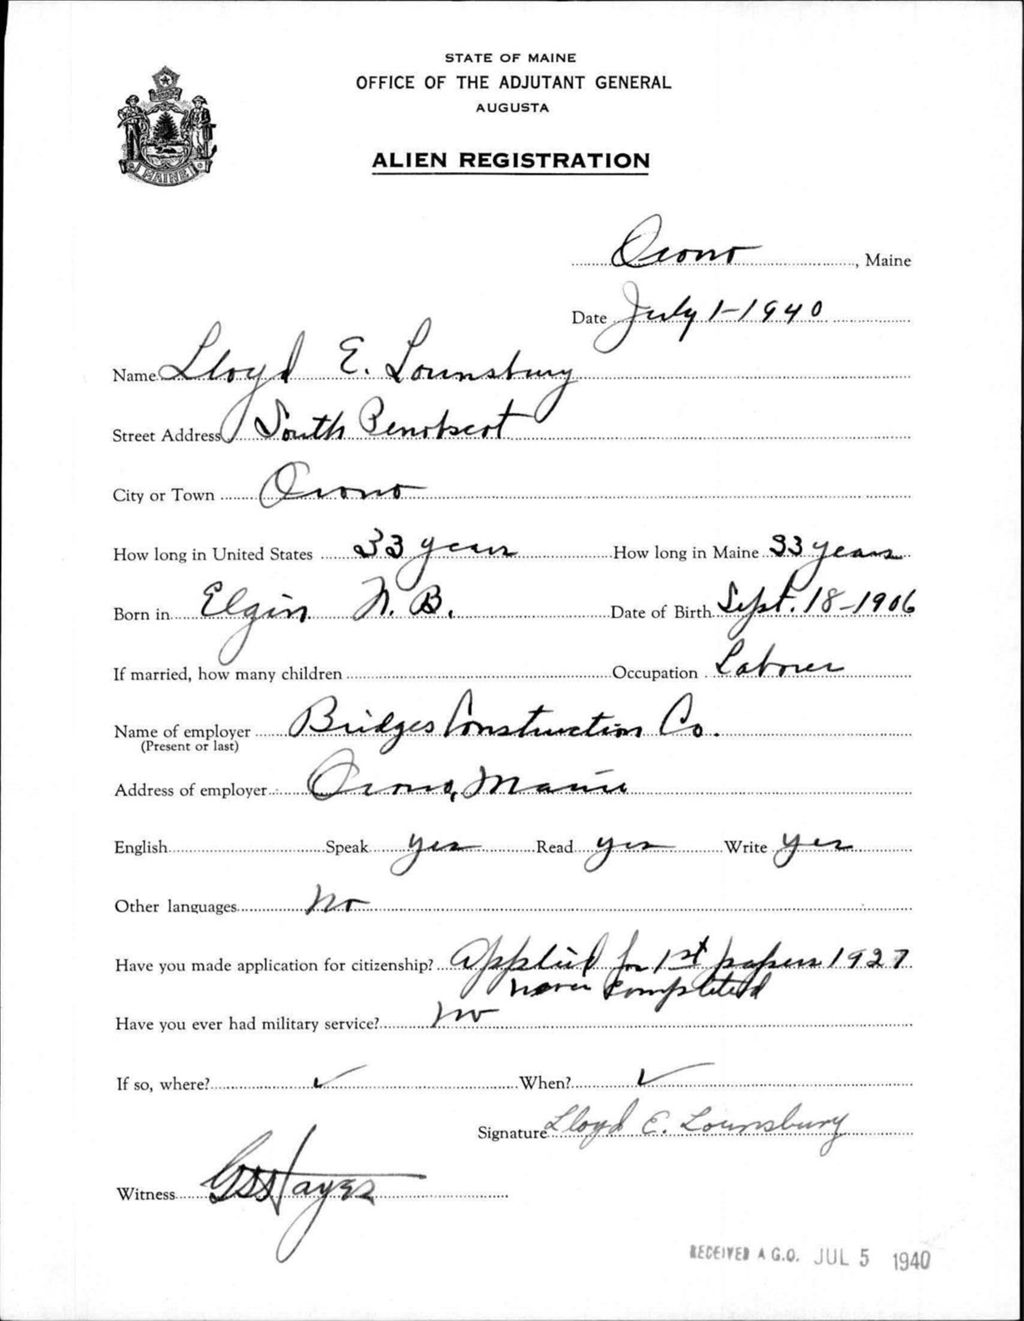 STATE OF MAINE
OFFICE OF THE ADJUTANT GENERAL
AUGUSTA
ALIEN REGISTRATION
MAINE
Orono, Maine
Date July 1-1940
Name Lloyd E. Lounsbury
Street Address South Penobscot
City or Town Orono
How long in United States 33 years How long in Maine 33 years
Born in Elgin N. B. Date of Birth Sept. 18-1906
If married, how many children Occupation Laborer
Name of employer Bridges Construction Co.
(Present or last)
Address of employer Orono, Maine
English Speak yes Read yes Write yes
Other languages No
Have you made application for citizenship? Applied for 1st papers 1927
never completed
Have you ever had military service? no
If so, where? ✓ When? ✓
Signature Lloyd E. Lounsbury
Witness Hayes
RECEIVED A.G.O. JUL 5 1940